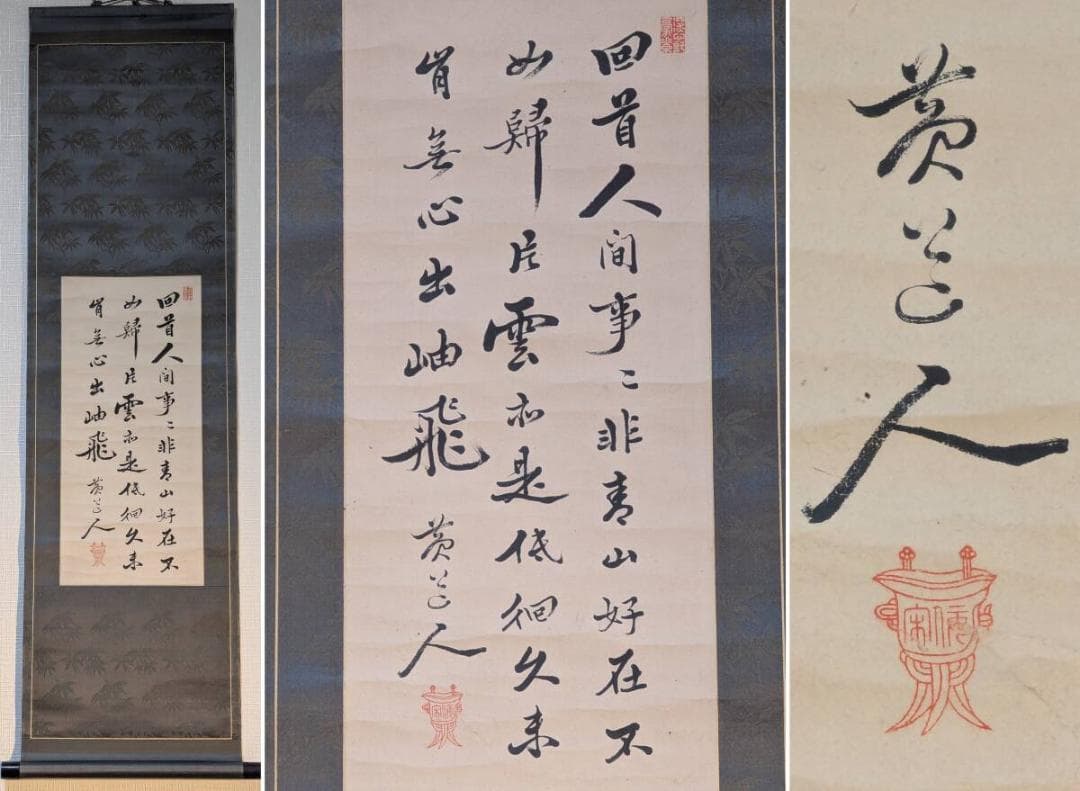 回首人間事〻非青山好在不
如歸片雲亦是低徊久未
肯無心出岫飛
黄道人
回首人間事〻非青山好在不
如歸片雲亦是低徊久未
肯無心出岫飛
黄道人
黄道人